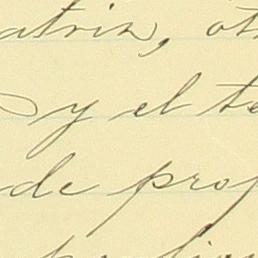 atriz, ot
y el te
de prop